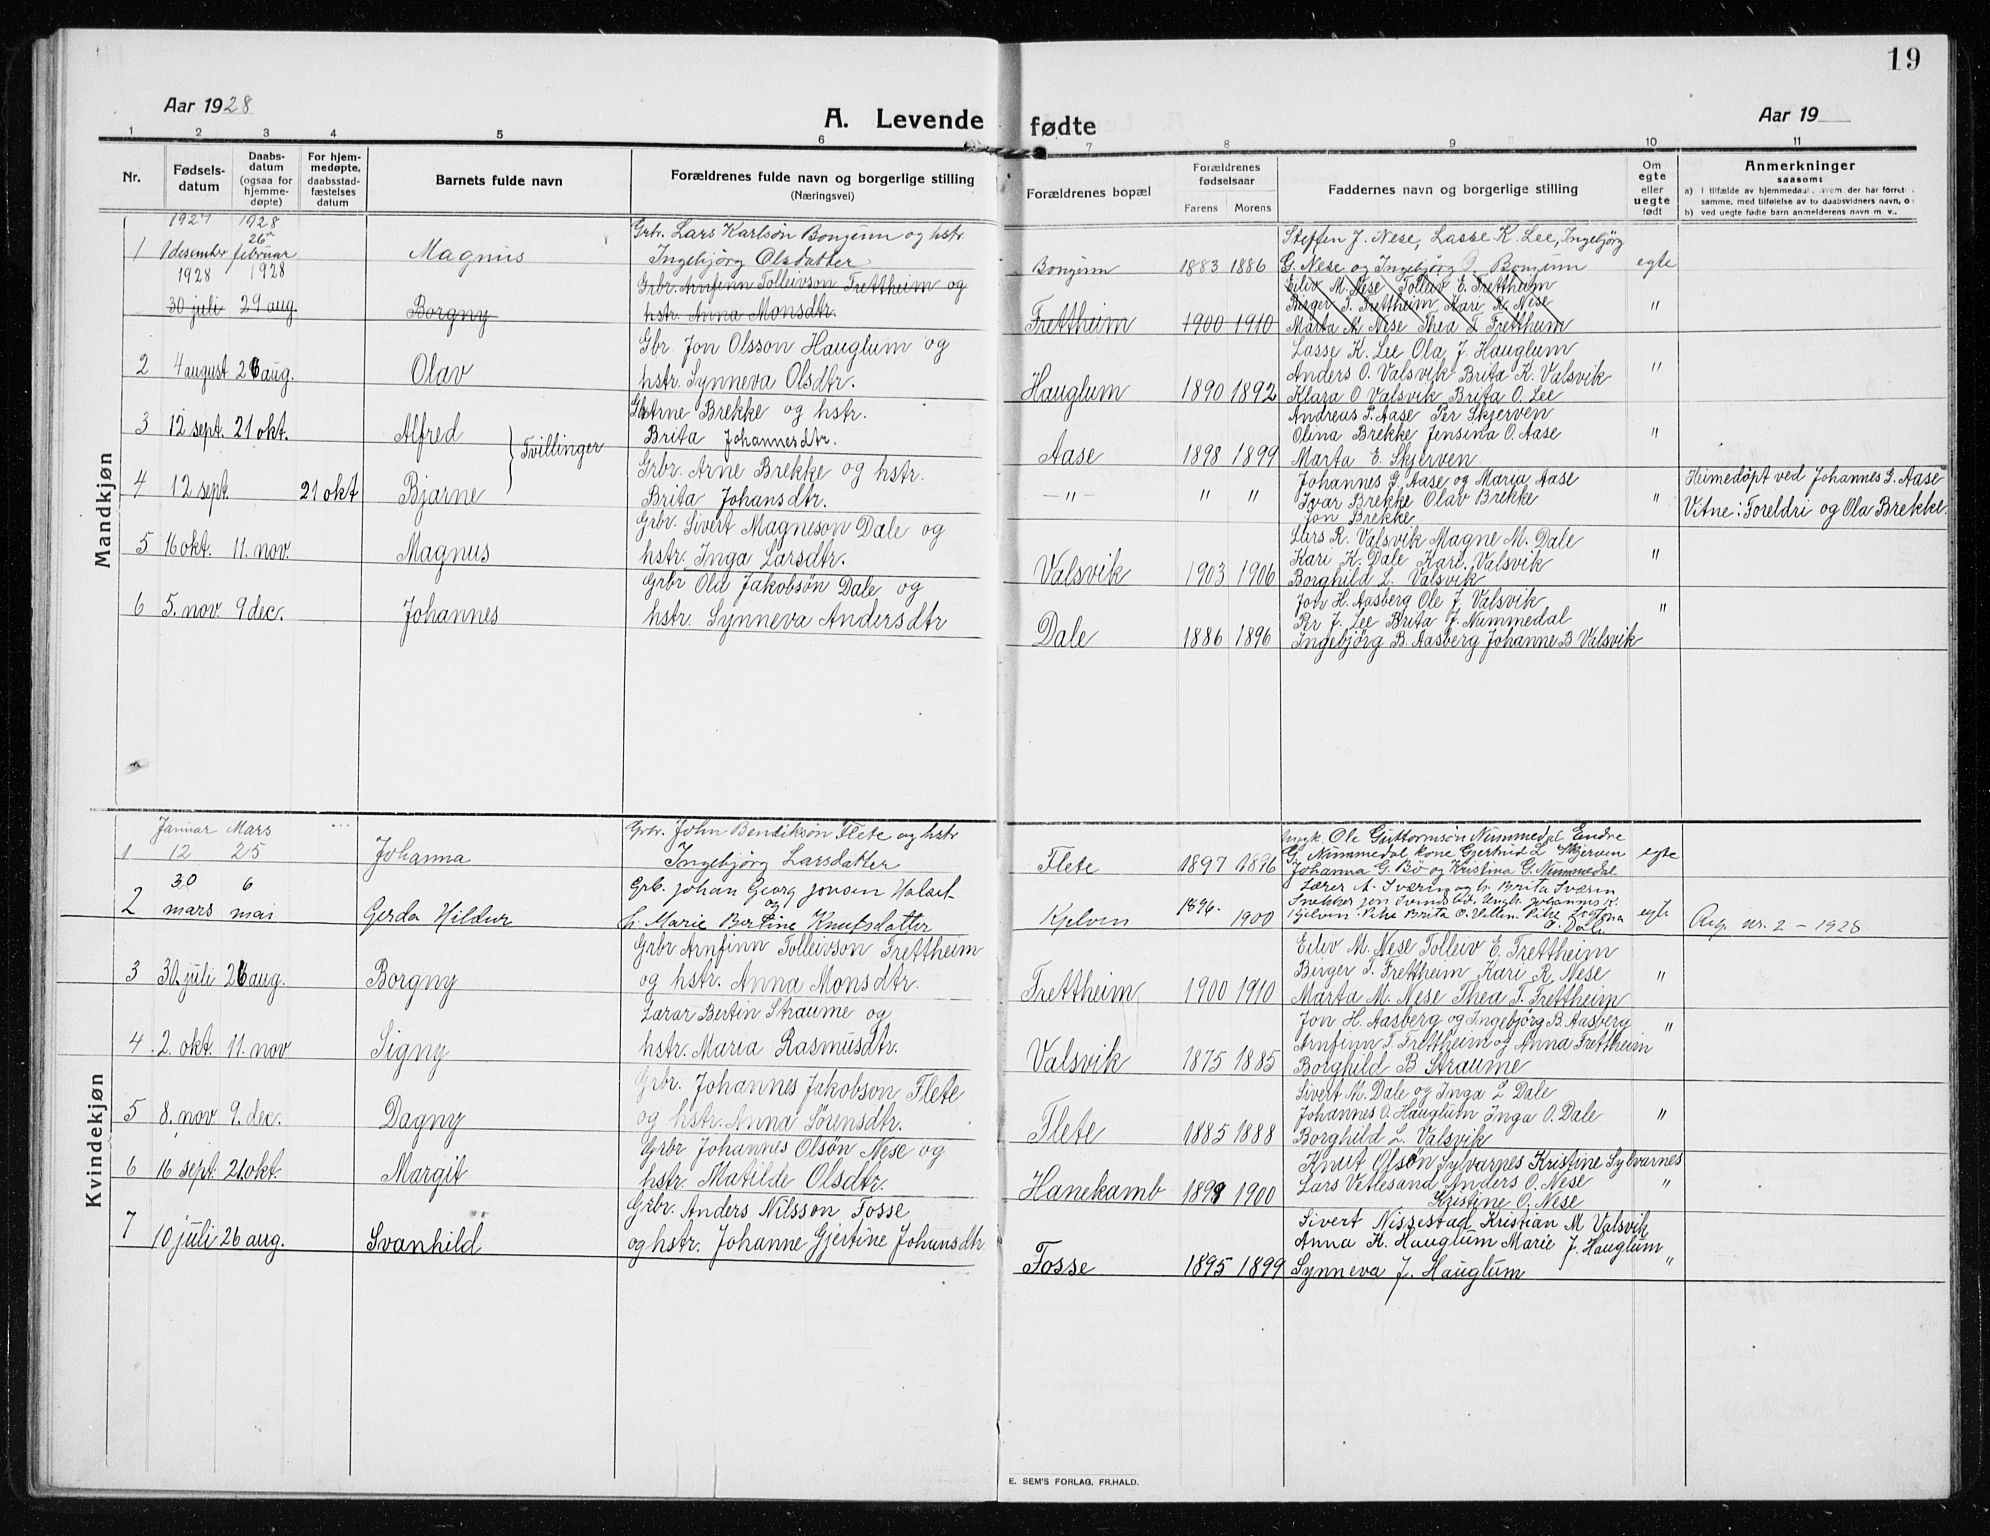 19
Aar 1928
A. Levende fødte
Aar 19
1 2 3 4 5 6 7 8 9 10 11
Nr.
Fødsels-datum
Daabs-datum (ogsaa for hjemme-døpte)
For hjem-medøpte, daabsstad-fæstelses datum
Barnets fulde navn
Forældrenes fulde navn og borgerlige stilling
(Næringsvei)
Forældrenes bopæl
Forældrenes fødselsaar
Farens Morens
Faddernes navn og borgerlige stilling
Om egte eller uegte født
Anmerkninger
saasom:
a) I tilfælde av hjemmedaab, hvem der har forret-
samme, med tilføielse av to daabsvidners navn, o
b) ved uegte fødte barn anmelderens navn m. v.,
Mandkjøn
1927 1928
1 1 desember 26 februar Magnus
Grbr. Lars Karlsøn Bongum og hstr.
Ingebjørg Olsdatter
Bongum 1883 1886
Steffen J. Nese, Lasse K. Lee, Ingebjørg
G. Nese og Ingebjørg O. Bongum
egte
1928 1928
30 juli 29 aug. Borgny
Grbr. Arnfinn Tolleivson Frettheim og
hstr. Anna Monsdtr.
Frettheim 1900 1910
Eiliv M. Nese Tolleiv E. Frettheim
Birger T. Frettheim Kari R. Nese
Marta M. Nese Thea T. Frettheim
"
2 4 august 26 aug. Olav
Gbr. Jon Olsson Hauglum og
hstr. Synneva Olsdtr.
Hauglum 1890 1892
Lasse K. Lee Ola J. Hauglum
Anders O. Valsvik Brita K. Valsvik
Klara O Valsvik Brita O. Lee
"
3 12 sept. 21 okt. Alfred
Tvillinger
Gbr. Arne Brekke og hstr.
Brita Johannesdtr.
Aase 1898 1899
Andreas P. Aase Per Skjerven
Olina Brekke Jensina O. Aase
Marta E. Skjerven
"
4 12 sept. 21 okt Bjarne
Grbr. Arne Brekke og hstr.
Brita Johansdtr.
— " — " "
Johannes G. Aase og Maria Aase
Ivar Brekke Olav Brekke
Jon Brekke
"
Heimedøpt ved Johannes G. Aase
Vitne: Foreldri og Ola Brekke.
5 16 okt. 11. nov. Magnus
Grbr. Sivert Magneson Dale og
hstr. Inga Larsdtr.
Valsvik 1903 1906
Lars R. Valsvik Magne M. Dale
Kari K. Dale Kari Valsvik
Borghild L. Valsvik
"
6 5. nov. 9 dec. Johannes
Grbr Ola Jakobsøn Dale og
hstr. Synneva Andersdtr
Dale 1886 1896
Jon H. Aasberg Ole J. Valsvik
Per J. Lee Brita J. Nummedal
Ingebjørg B. Aasberg Johanne B Valsvik
"
Kvindekjøn
Januar Mars
1 12 25 Johanna
Grbr. John Bendiksøn Flete og hstr
Ingebjørg Larsdatter
Flete 1897 1896
Ole Guttormsøn Nummedal Endre
G. Nummedal kone Gjertrud L. Skjerven
Johanna G. Bø og Kristina G. Nummedal
egte
2 30 mars 6 mai Gerda Hildur
Grb. Johan Georg Jonsen Halset
og
h. Marie Bertine Knutsdatter
Kjelven 1896. 1900
Lærer A. Sværen og h. Brita Sværen
egte
Reg nr. 2 - 1928
3 30. juli 26 aug. Borgny
Grbr Arnfinn Tolleivson Frettheim
og hstr. Anna Monsdtr.
Frettheim 1900 1910
Eiliv M. Nese Tolleiv E. Frettheim
Birger T. Frettheim Kari R. Nese
Marta M. Nese Thea T. Frettheim
"
4. 2. okt. 11. nov Signy
Lærar Bertin Straume og
hstr. Maria Rasmusdtr.
Valsvik 1875 1885
Jon H. Aasberg og Ingebjørg B. Aasberg
Arnfinn T Frettheim og Anna Frettheim
Borghild B Straume
"
5 8. nov 9. dec. Dagny
Grbr. Johannes Jakobson Flete
og hstr. Anna Sørensdtr.
Flete 1885 1888
Sivert M. Dale og Inga L. Dale
Johannes O. Hauglum Inga O. Dale
Borghild L. Valsvik
"
6 16 sept. 21.okt. Margit
Grbr Johannes Olsøn Nese og
hstr. Matilde Olsdtr.
Hanekamb 1899 1900
Knut Olsøn Sylvarnes Kristine Sylvarnes
Lars Vetlesand Anders O. Nese
Kristine O. Nese
"
7 10 juli 26 aug. Svanhild
Grbr. Anders Nilsson Fosse
og hstr. Johanne Gjertine Johansdtr
Fosse 1895 1899
Sivert Nissestad Kristian M Valsvik
Anna K. Hauglum Marie J. Hauglum
Synneva J. Hauglum
"
E. SEM'S FORLAG, FR.HALD.